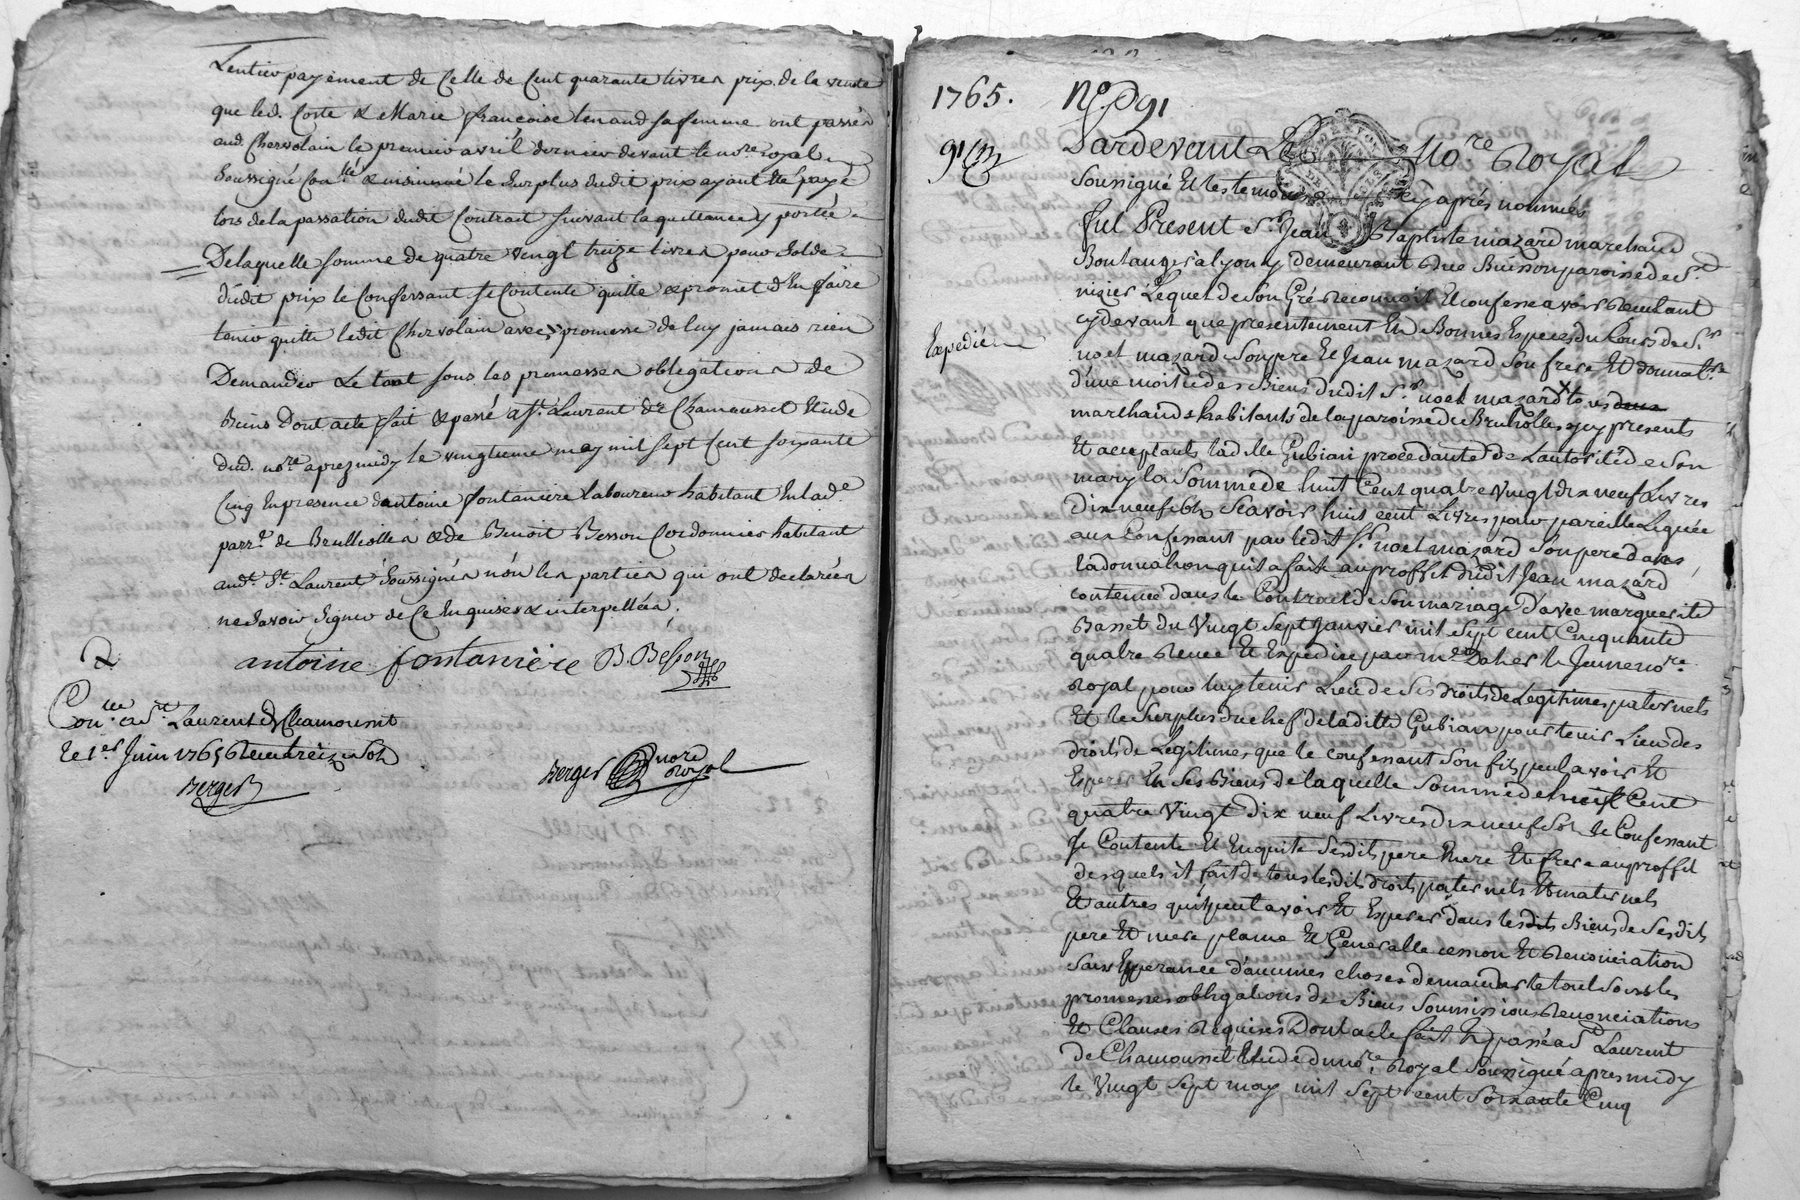 Lentier payement de Celle de Cent quarante livres prix de la vente
que led. Coste & Marie françoise tenand sa femme ont passée
aud. Chervolain le premier avril dernier devant le nore royal
Soussigné Conllé & insinué le Surplus dudit prix ayant Eté payé
lors de la passation dudit Contrat suivant la quittance y portée
De laquelle somme de quatre vingt treize livres pour Solde
dudit prix le Confessant se Contente quitte & promet d'En faire
tenir quitte ledit Chervolain avec promesse de luy jamais rien
Demander Le tout sous les promesses obligations de
Biens Dont acte fait & passé a St. Laurent de Chamousset Etude
dud. nore aprez midy le vingtieme may mil sept Cent soixante
Cinq En presence d'antoine fontaniere laboureur habitant En lad.e
parr.e de Brulliolles & de Benoit Besson Cordonnier habitant
aud. St. Laurent Soussignés non les parties qui ont declarées
ne Savoir Signer de Ce Enquises & interpellées.
antoine fontaniere B. Besson
Con.llé a St. Laurent de Chamousset
le 1er Juin 1765 treize Sols
Berger
Berger nore Royal
1765. No. 91
91
Pardevant Le Nore Royal
Soussigné Et les temoins Cy après nommés
fut Present Sr. Jean Baptiste mazard marchand
Boulanger à lyon y demeurant Rue Buisson paroisse de St
nizier Lequel de Son Gré Reconnoit Et confesse avoir Reçu tant
cy devant que presentement En Bonnes Especes du Cours de Sr
Expédié
noel mazard Son pere Et Jean mazard Son frere Et donnatre
d'une moitié des Biens dudit Sr. noel mazard tous deux
marchands habitants de la paroisse de Brulliolles icy presents
Et acceptants ladille Gubian procedante de L'autorité de Son
mary la Somme de huit Cent quatre Vingt dix neuf Livres
Dix neuf sols Scavoir huit cent Livres pour pareille Leguée
aux Confessant par ledit Sr. noel mazard Son pere dans
la donnation qu'il a fait au proffit dudit Jean mazard
contenue dans le Contract de Son mariage d'avec marguerite
Basset du Vingt Sept Janvier mil Sept cent Cinquante
quatre Reçue Et Expediée par me. Daher le Jeune nore.
Royal pour luy tenir Lieu de Ses droits de Legitimes paternels
Et le Surplus du chef de ladite Gubian pour tenir Lieu des
droits de Legitimes que le confessant Son fils peut avoir Et
Esperer En Ses Biens de laquelle Somme de huit Cent
quatre Vingt dix neuf Livres dix neuf Sols le Confessant
Se Contente Et Enquitte Sesdits pere Mere Et frere au proffit
desquels il fait de tous lesdits droits paternels Et maternels
Et autres qu'il peut avoir Et Esperer dans lesdits Biens de Sesdits
pere Et mere plaine Et Generalle cession Et Renonciation
Sans Esperance d'aucunes choses demander le tout Sous les
promesses obligations de Biens Soumissions Renonciations
Et Clauses Requises Dont acte fait Et passé a St Laurent
de Chamousset Etude du nore. Royal Soussigné apres midy
le Vingt Sept may mil Sept cent Soixante Cinq